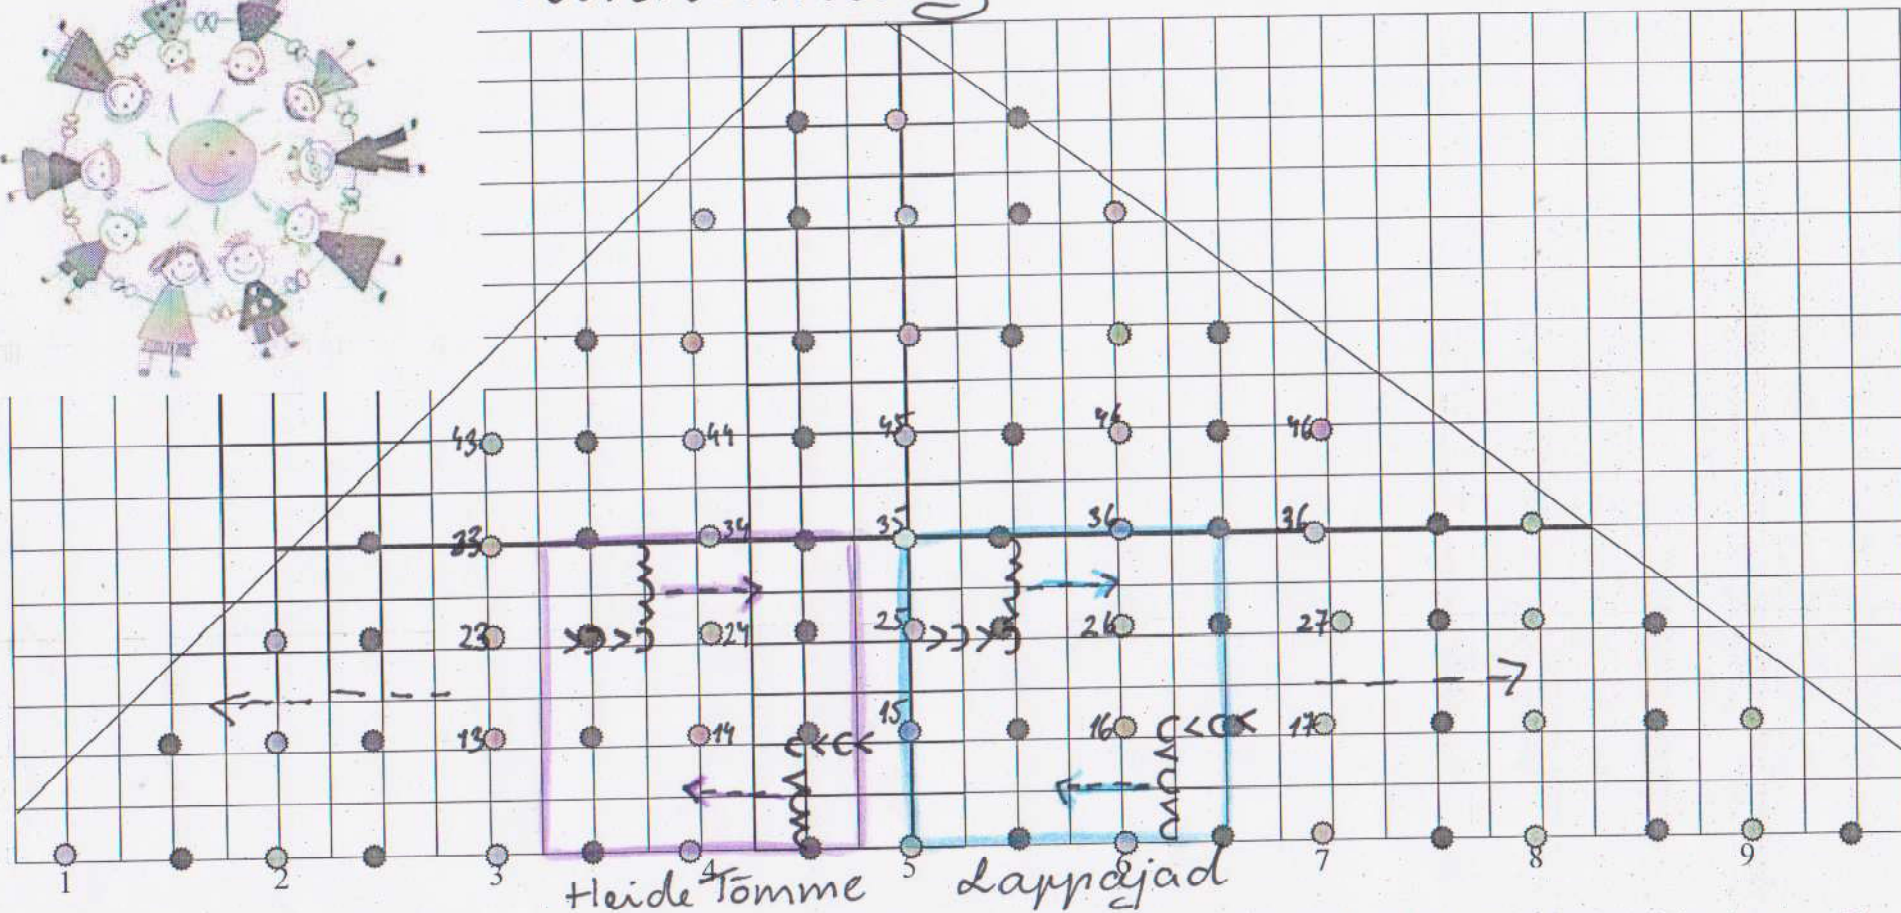 43 44 45 46 46
33 34 35 36 36
23 24 25 26 27
13 14 15 16 17
1 2 3 4 5 6 7 8 9
Heide Tõmme Lappajad